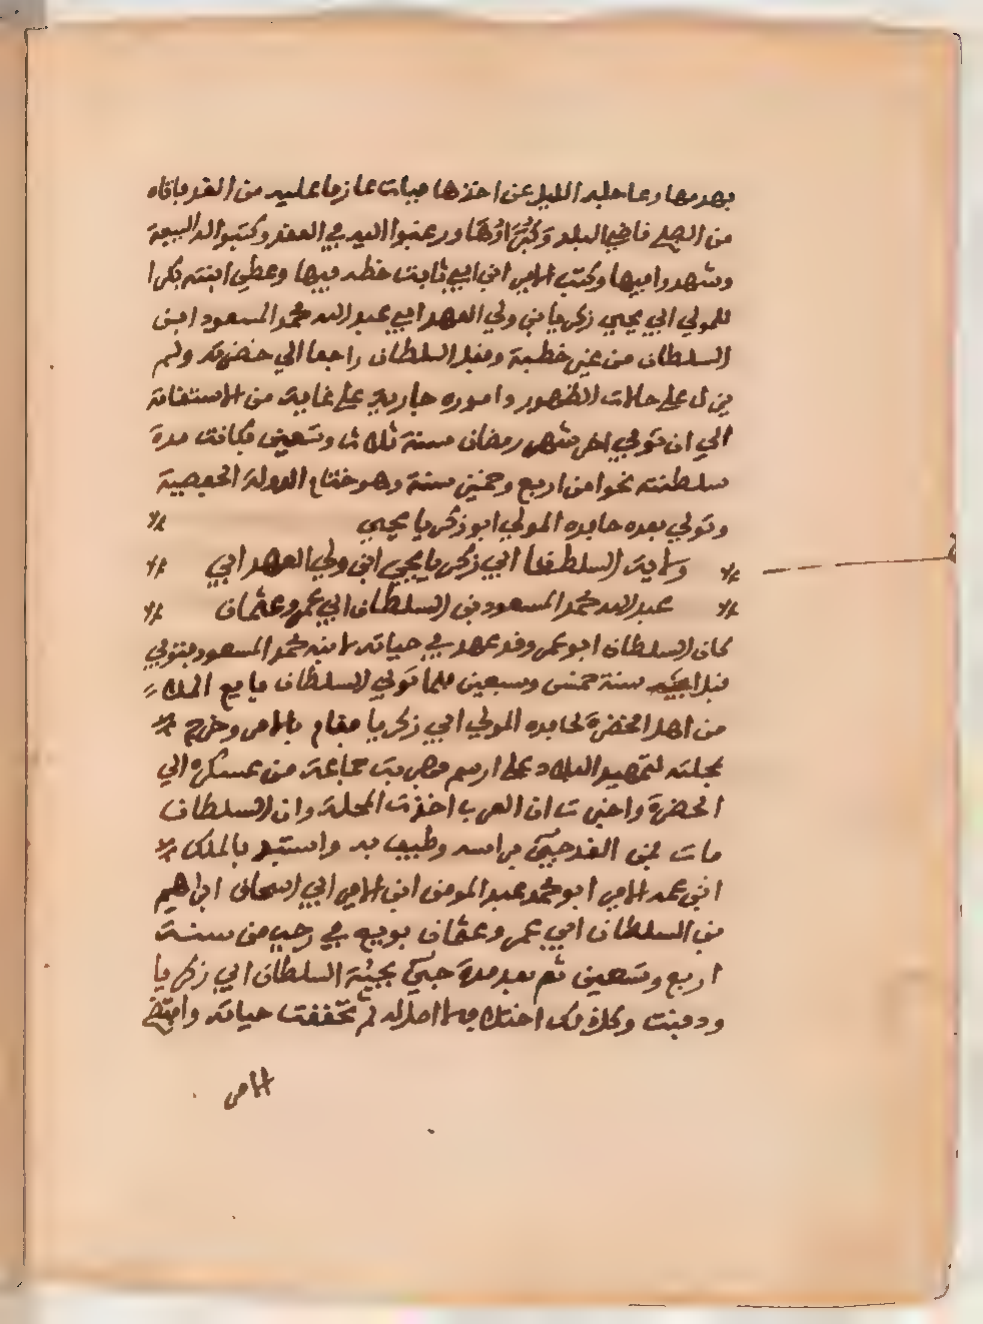 بهدمها وعاجله الليل عن اخذها فبات عازما عليه من الغد فاتاه
من الصلح قاضي البلد وكبراؤها ورغبوا اليه في العفو وكتبوا له البيعة
وشهدوا فيها وكتب الامير ابن ابي ثابت خطه فيها وعطى ابنته بكرا
للمولى ابي يحيى زكرياء بن ولي العهد ابي عبد الله محمد المسعود ابن
السلطان من غير خطبة وقفل السلطان راجعا الي حضرته ولم
يزل على حالات الظهور واموره جارية على غاية من الاستقامة
الي ان توفي اخر شهر رمضان سنة ثلاث وتسعين فكانت مدة
سلطنته نحوا من اربع وخمسين سنة وهو ختام الدولة الحفصية
وتولي بعده حفيده المولي ابو زكريا يحيي
ولاية السلطان ابي زكريا يحيي ابن ولي العهد ابي
عبد الله محمد المسعود بن السلطان ابي عمرو عثمان
كان السلطان ابو عمرو قد عهد في حياته لابنه محمد المسعود فتوفي
قبل ابيه سنة خمس وسبعين فلما توفي السلطان بايع الملك
من اهل الحضرة لحفيده المولي ابي زكريا فقام بالامر وخرج
بمحلته لتمهيد البلاد على ارسم فهربت جماعة من عسكره الي
الحضرة واخبرت ان العرب اخذت المحلة وان السلطان
مات فمن الغد جيئ براسه وطيف به واستبد بالملك
ابن عمه الامير ابو محمد عبد المومن ابن الامير ابي اسحاق ابراهيم
بن السلطان ابي عمرو عثمان بويع في رجب من سنة
اربع وتسعين ثم بعد مدة جيئ بجثة السلطان ابي زكريا
ودفنت وكان ذلك اختلاقا لا اصل له ثم تحققت حياته وانتقض
الامر